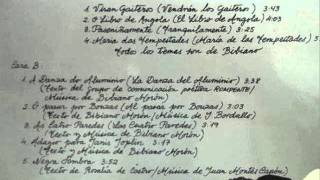 1. Virán Gaiteros (Vendrán los Gaiteros) 3:43
2. O Libro de Angola (El Libro de Angola) 4:03
3. Paseniñamente (Tranquilamente) 3:25
4. María das Tempestades (María de las Tempestades)
Todos los temas son de Bibiano
Cara B:
1. A Danza do Aluminio (La Danza del Aluminio) 3:38
(Texto del grupo de comunicación poética ROMPENTE/
Música de Bibiano Morón)
2. O pasar por Bouzas (Al pasar por Bouzas) 3:03
(Texto de Bibiano Morón/Música de J. Bordallo)
3. As Catro Paredes (Las Cuatro Paredes) 3:19
(Texto y Música de Bibiano Morón)
4. Adagio para Janis Joplin
(Texto y Música de Bibiano Morón)
5. Negra Sombra 3:52
(Texto de Rosalía de Castro/Música de Juan Montes Capón)